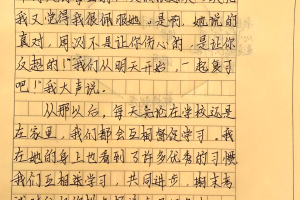 我又觉得我很佩服她，是啊，她说的
真对，周测不是让你伤心的，是让你
反超的！"我们从明天开始，一起复习
吧！"我大声说。
从那以后，每天无论在学校还是
在家里，我们都会互相督促学习。我
在她的身上也看到了许多优秀的习惯
我们互相送学习，共同进步，期末考